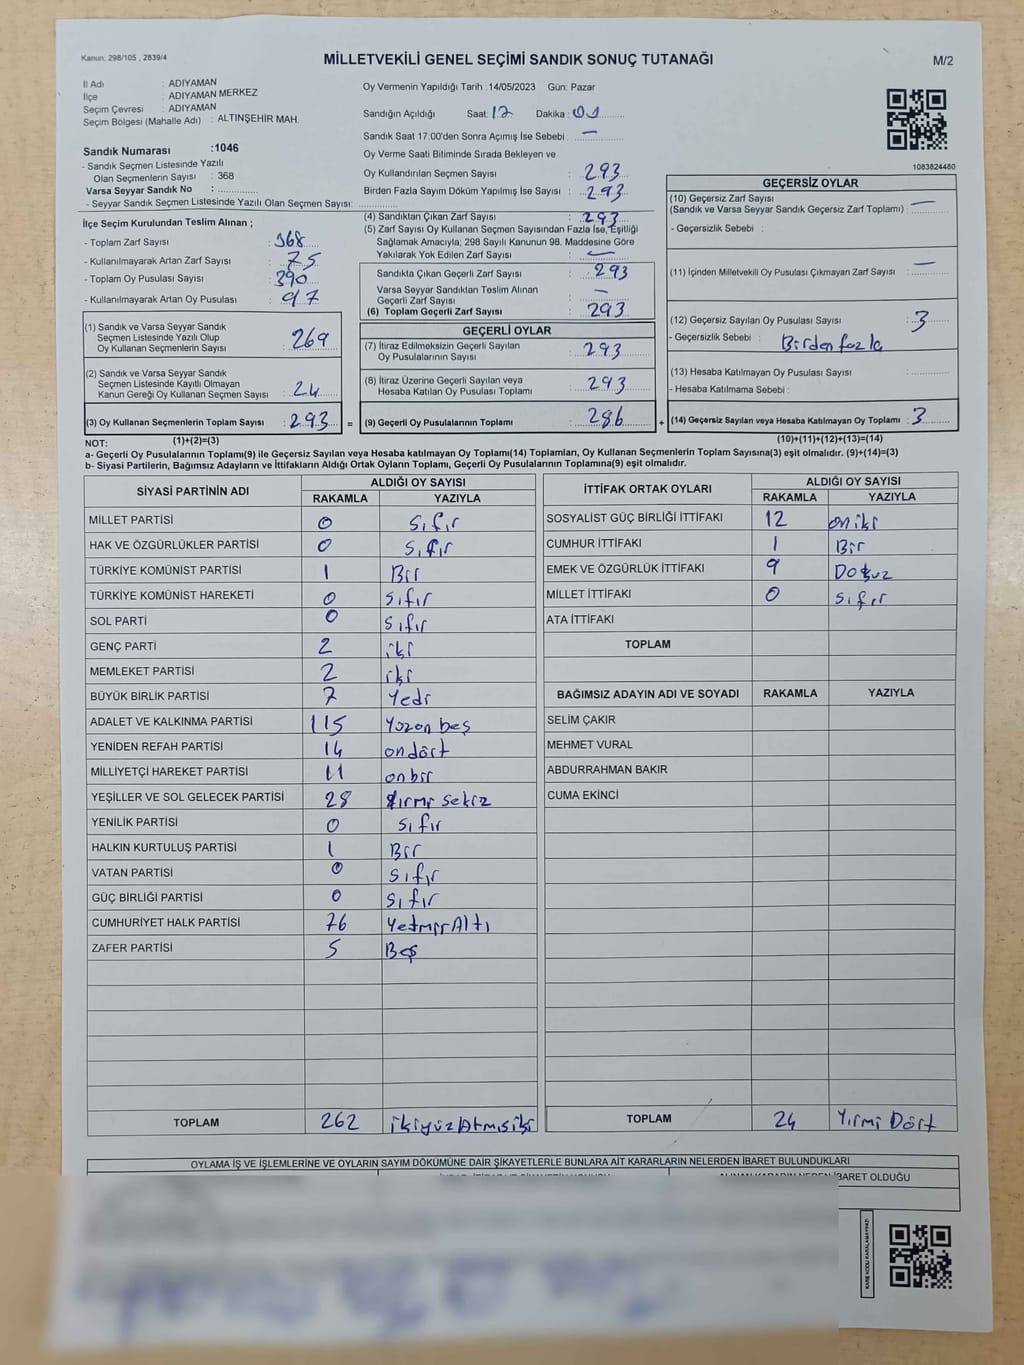 Kanun: 298/105 , 2839/4
MİLLETVEKİLİ GENEL SEÇİMİ SANDIK SONUÇ TUTANAĞI
M/2
İl Adı : ADIYAMAN
İlçe : ADIYAMAN MERKEZ
Seçim Çevresi : ADIYAMAN
Seçim Bölgesi (Mahalle Adı) : ALTINŞEHİR MAH.
Sandık Numarası :1046
- Sandık Seçmen Listesinde Yazılı
Olan Seçmenlerin Sayısı : 368
Varsa Seyyar Sandık No :
- Seyyar Sandık Seçmen Listesinde Yazılı Olan Seçmen Sayısı:
Oy Vermenin Yapıldığı Tarih :14/05/2023 Gün: Pazar
Sandığın Açıldığı Saat: 17 Dakika: 01
Sandık Saat 17:00'den Sonra Açımış İse Sebebi : —
Oy Verme Saati Bitiminde Sırada Bekleyen ve
Oy Kullandırılan Seçmen Sayısı : 293
Birden Fazla Sayım Döküm Yapılmış İse Sayısı : 293
1083824480
İlçe Seçim Kurulundan Teslim Alınan ;
- Toplam Zarf Sayısı : 368
- Kullanılmayarak Artan Zarf Sayısı : 75
- Toplam Oy Pusulası Sayısı : 390
- Kullanılmayarak Artan Oy Pusulası : 97
(1) Sandık ve Varsa Seyyar Sandık
Seçmen Listesinde Yazılı Olup
Oy Kullanan Seçmenlerin Sayısı : 269
(2) Sandık ve Varsa Seyyar Sandık
Seçmen Listesinde Kayıtlı Olmayan
Kanun Gereği Oy Kullanan Seçmen Sayısı : 24
(3) Oy Kullanan Seçmenlerin Toplam Sayısı : 293 =
(4) Sandıktan Çıkan Zarf Sayısı : 293
(5) Zarf Sayısı Oy Kullanan Seçmen Sayısından Fazla İse, Eşitliği
Sağlamak Amacıyla; 298 Sayılı Kanunun 98. Maddesine Göre
Yakılarak Yok Edilen Zarf Sayısı : —
Sandıkta Çıkan Geçerli Zarf Sayısı : 293
Varsa Seyyar Sandıktan Teslim Alınan
Geçerli Zarf Sayısı : —
(6) Toplam Geçerli Zarf Sayısı : 293
GEÇERLİ OYLAR
(7) İtiraz Edilmeksizin Geçerli Sayılan
Oy Pusulalarının Sayısı : 293
(8) İtiraz Üzerine Geçerli Sayılan veya
Hesaba Katılan Oy Pusulası Toplamı : 293
(9) Geçerli Oy Pusulalarının Toplamı : 286 +
GEÇERSİZ OYLAR
(10) Geçersiz Zarf Sayısı
(Sandık ve Varsa Seyyar Sandık Geçersiz Zarf Toplamı) : —
- Geçersizlik Sebebi :
(11) İçinden Milletvekili Oy Pusulası Çıkmayan Zarf Sayısı : —
(12) Geçersiz Sayılan Oy Pusulası Sayısı : 3
- Geçersizlik Sebebi : Birden fazla
(13) Hesaba Katılmayan Oy Pusulası Sayısı :
- Hesaba Katılmama Sebebi :
(14) Geçersiz Sayılan veya Hesaba Katılmayan Oy Toplamı : 3
NOT: (1)+(2)=(3)
(10)+(11)+(12)+(13)=(14)
a- Geçerli Oy Pusulalarının Toplamı(9) ile Geçersiz Sayılan veya Hesaba katılmayan Oy Toplamı(14) Toplamları, Oy Kullanan Seçmenlerin Toplam Sayısına(3) eşit olmalıdır. (9)+(14)=(3)
b- Siyasi Partilerin, Bağımsız Adayların ve İttifakların Aldığı Ortak Oyların Toplamı, Geçerli Oy Pusulalarının Toplamına(9) eşit olmalıdır.
SİYASİ PARTİNİN ADI ALDIĞI OY SAYISI
RAKAMLA YAZIYLA
MİLLET PARTİSİ 0 Sıfır
HAK VE ÖZGÜRLÜKLER PARTİSİ 0 Sıfır
TÜRKİYE KOMÜNİST PARTİSİ 1 Bir
TÜRKİYE KOMÜNİST HAREKETİ 0 Sıfır
SOL PARTİ 0 Sıfır
GENÇ PARTİ 2 iki
MEMLEKET PARTİSİ 2 iki
BÜYÜK BİRLİK PARTİSİ 7 Yedi
ADALET VE KALKINMA PARTİSİ 115 Yüzon beş
YENİDEN REFAH PARTİSİ 14 on dört
MİLLİYETÇİ HAREKET PARTİSİ 11 onbir
YEŞİLLER VE SOL GELECEK PARTİSİ 28 Yirmi Sekiz
YENİLİK PARTİSİ 0 Sıfır
HALKIN KURTULUŞ PARTİSİ 1 Bir
VATAN PARTİSİ 0 Sıfır
GÜÇ BİRLİĞİ PARTİSİ 0 Sıfır
CUMHURİYET HALK PARTİSİ 76 YetmişAltı
ZAFER PARTİSİ 5 Beş
TOPLAM 262 ikiyüzAtmışiki
İTTİFAK ORTAK OYLARI ALDIĞI OY SAYISI
RAKAMLA YAZIYLA
SOSYALİST GÜÇ BİRLİĞİ İTTİFAKI 12 oniki
CUMHUR İTTİFAKI 1 Bir
EMEK VE ÖZGÜRLÜK İTTİFAKI 9 Dokuz
MİLLET İTTİFAKI 0 Sıfır
ATA İTTİFAKI
TOPLAM
BAĞIMSIZ ADAYIN ADI VE SOYADI RAKAMLA YAZIYLA
SELİM ÇAKIR
MEHMET VURAL
ABDURRAHMAN BAKIR
CUMA EKİNCİ
TOPLAM 24 Yirmi Dört
OYLAMA İŞ VE İŞLEMLERİNE VE OYLARIN SAYIM DÖKÜMÜNE DAİR ŞİKAYETLERLE BUNLARA AİT KARARLARIN NELERDEN İBARET BULUNDUKLARI
ALINAN KARARIN NEDEN İBARET OLDUĞU
KARE KODU KARALAMAYINIZ!